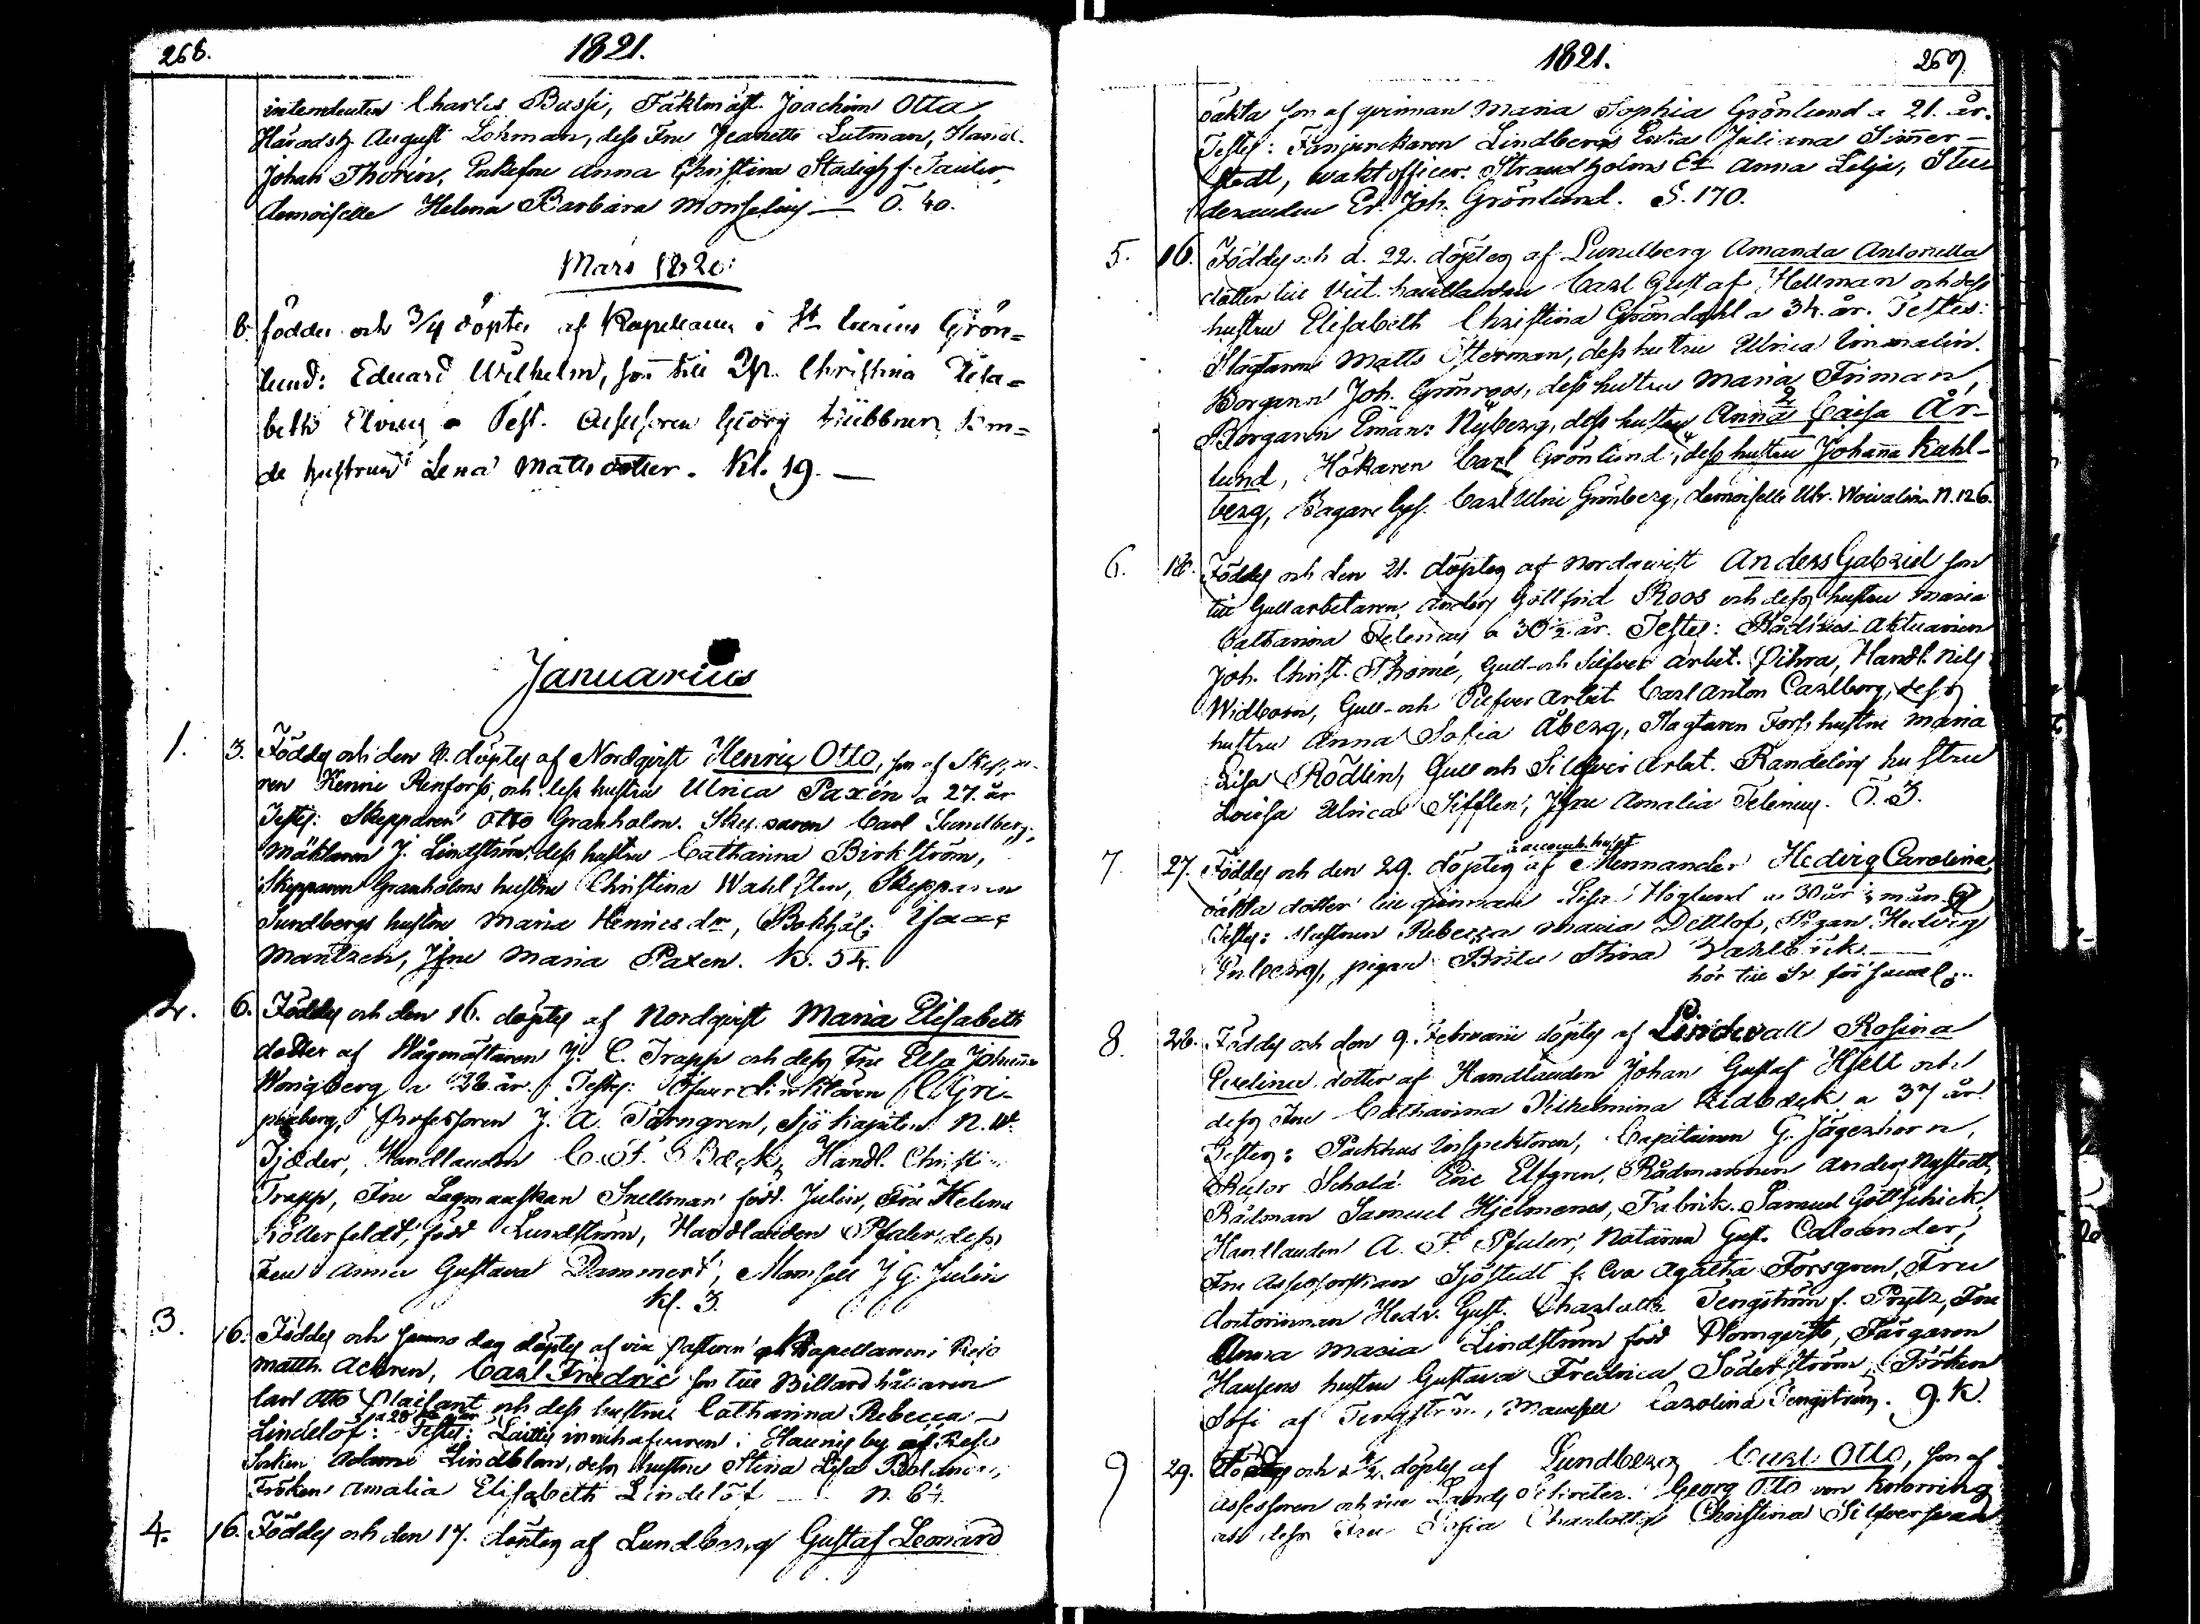 268. 1821.
intendenten Charles Bassi, Fäktmäst. Joachim Otta
Häradsh. August Lohman, dess Fru Jeanette Lutman, Handl.
Johan Thorin, Enkefru Anna Christina Stadigh f. Tauler,
demoiselle Helena Barbara Monselius — Ö. 40.
Mars 1820:
8. föddes och 3/4 döptes af Kapellanen i St. Grön=
lund: Eduard Wilhelm, son till Jgfr. Christina Elisa=
beth Test. Georg Hübbner,
de hustrun Lena Mattsdotter. Kl. 19. —
Januarius
1. 3. Föddes och den 8. döptes af Nordqvist Henric Otto, son af Skeppa-
ren Henric Renfors, och dess hustru Ulrica Paxén a 27. år
Testes: Skepparen Otto Granholm. Skepparen Carl Sundberg,
Mäklaren J. Lindström, dess hustru Catharina Birkström,
Skepparen Granholms hustru Christina Wahlsten, Skepparen
Sundbergs hustru Maria Henricsdr, Bokhål: Isaac
Mantzen, Jgfru Maria Paxen. K. 54.
2. 6. Föddes och den 16. döptes af Nordqvist Maria Elisabeth
dotter af Wågmästaren J. C. Trapp och dess Fru Ulla Johanna
Wongberg a 28 år. Testes: Gri-
penberg, Professoren J. A. Törngren, Sjökapiten N. W.
Tjæder, Handlanden C. F. Bæck, Handl. Christi
Trapp, Fru Lagmanskan Snellman född Julin, Fru Helena
Kollerfeldt, född Lundström, Handlanden Pfaler, dess
Fru Anna Gustava Dammert, Mamsell J G. Julin
Kl. 3.
3. 16. Föddes och samma dag döptes af vice Pastorn och Kapellanen i Reso
Matth. Achren, Carl Fredric son till Billardhållaren
Carl Otto Plaisant och dess hustru Catharina Rebecca
Lindelöf: a 28 år Testes: innehafvaren i by af Reso
Socken Adam Lindblom, dess hustru Stina Lisa
Fröken Amalia Elisabeth Lindelöf — N. 64.
4. 16. Föddes och den 17. döptes af Lundberg Gustaf Leonard
1821. 269
oäkta son af qvinnan Maria Sophia Grönlund a 21. år.
Testes: Fanjunkaren Lindbergs Enka Juliana Simer-
stedt, waktofficer: Strandholms Ea Anna Lilja, Stu
deranten Er. Joh. Grönlund. S. 170.
5. 16. Föddes och d. 22. döptes af Lundberg Amanda Antonetta
dotter till Vict. handlanden Carl Gustaf Hellman och dess
hustru Elisabeth Christina Gröndahl a 34. år. Testes:
Slagtaren Matts Österman, dess hustru Ulrica Limmalin.
Borgaren Joh. Grönroos, dess hustru Maria Friman,
Borgaren Eman: Nyberg, dess hustru Anna Caisa År-
lund, Hökaren Carl Grönlund, dess hustru Johanna Kahl-
berg, Bagare Ges. Carl Ulric Grönberg, demoiselle Ulr. Woivalin N. 126.
6. 18. Föddes och den 21. döptes af Nordqvist Anders Gabriel son
till Gullarbetaren Anders Gottfrid Roos och dess hustru Maria
Catharina Telenius a 30 1/2 år. Testes: Rådhus-Aktuarien
Joh. Christ. Thomé, Gull- och Silfver arbet. Pihra, Handl. Nils
Widbom, Gull- och Silfver Arbet Carl Anton Carlborg, dess
hustru Anna Sofia Åberg, Slagtaren Forss hustru Maria
Lisa Rödlin, Gull och Silfver Arbet. Randelins hustru
Lovisa Ulrica Sifflen, Jgfru Amalia Telenius. Ö. 3.
7. 27. Föddes och den 29. döptes af Mennander Hedvig Carolina
oäkta dotter till qvinnan Lisa Höglund a 30 år
Testes: Hustrun Rebecka Maria Dettlof, Pigan Hedvig
pigan Brita Stina Dahlbäck —
hör till Sv. församl:
8. 28. Föddes och den 9. Februarii döptes af Lindevall Rosina
Evelina dotter af Handlanden Johan Gustaf Hjelt och
dess Fru Catharina Wilhelmina Lidbæck a 37 år.
Testes: Packhus Inspektoren, Capitainen G. Jägerhorn,
Rector Schola Eric Elfgren, Rådmannen Anders Nystedt,
Rådman Samuel Hjelmenes, Fabrik. Samuel Gottschick,
Handlanden A. F. Pfaler, Notarien Gust. Caloander,
Fru Assessorskan Sjöstedt f. Eva Agatha Forsgren, Fru
Doctorinnan Hedv. Gust. Charlotta Tengström f. Prytz, Fru
Anna Maria Lindström född Blomqvist, Färgaren
Hansens hustru Gustava Fredrica Söderström, Fröken
Sofi af Tengström, Mamsell Carolina Tengström. 9. K.
9 29. Föddes och döptes af Lundberg Carl Otto, son af
Assessoren och vice Lands Sekreter. Georg Otto von Knorring
och dess Fru Sofia Charlotta Christina Silfversvan